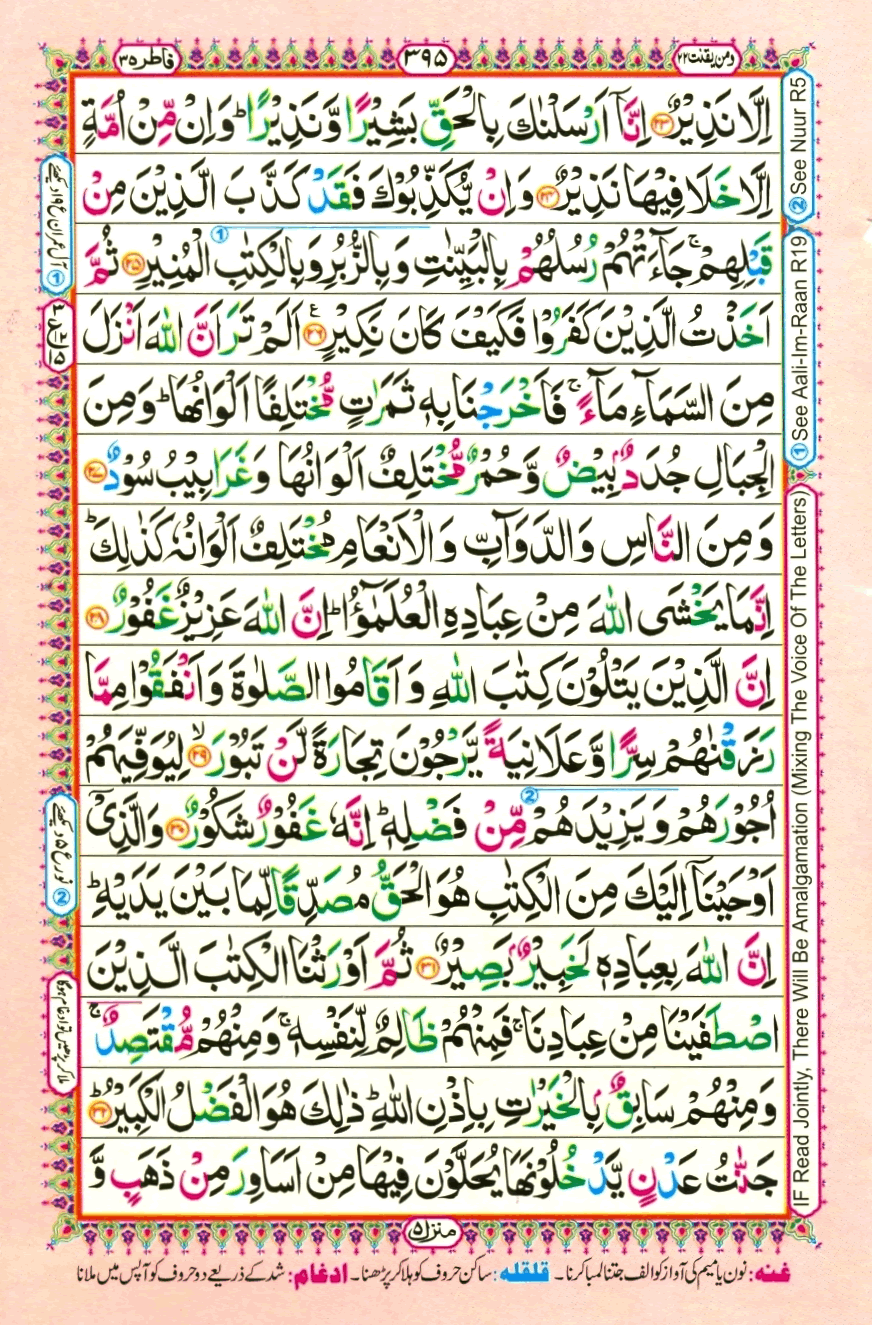 ومن یقنت ۲۲
۳۹۵
فاطر ۳۵
اِلَّا نَذِيْرٌ ﴿۲۳﴾ اِنَّاۤ اَرْسَلْنٰكَ بِالْحَقِّ بَشِيْرًا وَّنَذِيْرًا ؕ وَاِنْ مِّنْ اُمَّةٍ
اِلَّا خَلَا فِيْهَا نَذِيْرٌ ﴿۲۴﴾ وَاِنْ يُّكَذِّبُوْكَ فَقَدْ كَذَّبَ الَّذِيْنَ مِنْ
قَبْلِهِمْ ۚ جَآءَتْهُمْ رُسُلُهُمْ بِالْبَيِّنٰتِ وَبِالزُّبُرِ وَبِالْكِتٰبِ الْمُنِيْرِ ﴿۲۵﴾ ثُمَّ
اَخَذْتُ الَّذِيْنَ كَفَرُوْا فَكَيْفَ كَانَ نَكِيْرِ ﴿۲۶﴾ اَلَمْ تَرَ اَنَّ اللّٰهَ اَنْزَلَ
مِنَ السَّمَآءِ مَآءً ۚ فَاَخْرَجْنَا بِهٖ ثَمَرٰتٍ مُّخْتَلِفًا اَلْوَانُهَا ؕ وَمِنَ
الْجِبَالِ جُدَدٌۢ بِيْضٌ وَّحُمْرٌ مُّخْتَلِفٌ اَلْوَانُهَا وَغَرَابِيْبُ سُوْدٌ ﴿۲۷﴾
وَمِنَ النَّاسِ وَالدَّوَآبِّ وَالْاَنْعَامِ مُخْتَلِفٌ اَلْوَانُهٗ كَذٰلِكَ ؕ
اِنَّمَا يَخْشَى اللّٰهَ مِنْ عِبَادِهِ الْعُلَمٰٓؤُا ؕ اِنَّ اللّٰهَ عَزِيْزٌ غَفُوْرٌ ﴿۲۸﴾
اِنَّ الَّذِيْنَ يَتْلُوْنَ كِتٰبَ اللّٰهِ وَاَقَامُوا الصَّلٰوةَ وَاَنْفَقُوْا مِمَّا
رَزَقْنٰهُمْ سِرًّا وَّعَلَانِيَةً يَّرْجُوْنَ تِجَارَةً لَّنْ تَبُوْرَ ۙ ﴿۲۹﴾ لِيُوَفِّيَهُمْ
اُجُوْرَهُمْ وَيَزِيْدَهُمْ مِّنْ فَضْلِهٖ ؕ اِنَّهٗ غَفُوْرٌ شَكُوْرٌ ﴿۳۰﴾ وَالَّذِيْۤ
اَوْحَيْنَاۤ اِلَيْكَ مِنَ الْكِتٰبِ هُوَ الْحَقُّ مُصَدِّقًا لِّمَا بَيْنَ يَدَيْهِ ؕ
اِنَّ اللّٰهَ بِعِبَادِهٖ لَخَبِيْرٌۢ بَصِيْرٌ ﴿۳۱﴾ ثُمَّ اَوْرَثْنَا الْكِتٰبَ الَّذِيْنَ
اصْطَفَيْنَا مِنْ عِبَادِنَا ۚ فَمِنْهُمْ ظَالِمٌ لِّنَفْسِهٖ ۚ وَمِنْهُمْ مُّقْتَصِدٌ ۚ
وَمِنْهُمْ سَابِقٌۢ بِالْخَيْرٰتِ بِاِذْنِ اللّٰهِ ؕ ذٰلِكَ هُوَ الْفَضْلُ الْكَبِيْرُ ؕ ﴿۳۲﴾
جَنّٰتُ عَدْنٍ يَّدْخُلُوْنَهَا يُحَلَّوْنَ فِيْهَا مِنْ اَسَاوِرَ مِنْ ذَهَبٍ وَّ
② See Nuur R5
① See Aali-Im-Raan R19
IF Read Jointly, There Will Be Amalgamation (Mixing The Voice Of The Letters)
① آل عمران ع ۱۹ دیکھئے
② نور ع ۵ دیکھئے
ملا کر پڑھیں تو ادغام ہوگا
منزل ۵
غنه: نون یا میم کی آواز کو الف جتنا لمبا کرنا۔ قلقله: ساکن حروف کو ہلا کر پڑھنا۔ ادغام: شد کے ذریعے دو حروف کو آپس میں ملانا